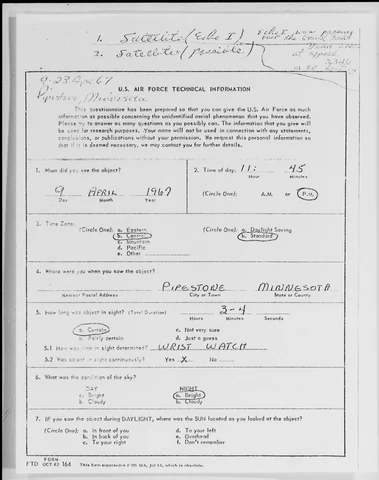 1. Satellite (Echo I) Echo I was passing
over the
2. Satellites (possible)
9-23 Apr 67
Pipestone, Minnesota
U.S. AIR FORCE TECHNICAL INFORMATION
This questionnaire has been prepared so that you can give the U.S. Air Force as much
information as possible concerning the unidentified aerial phenomenon that you have observed.
Please try to answer as many questions as you possibly can. The information that you give will
be used for research purposes. Your name will not be used in connection with any statements,
conclusions, or publications without your permission. We request this personal information so
that if it is deemed necessary, we may contact you for further details.
1. When did you see the object?
9 APRIL 1967
Day Month Year
2. Time of day: 11: 45
Hour Minutes
(Circle One): A.M. or P.M.
3. Time Zone:
(Circle One): a. Eastern
b. Central
c. Mountain
d. Pacific
e. Other
(Circle One): a. Daylight Saving
b. Standard
4. Where were you when you saw the object?
PIPESTONE MINNESOTA
Nearest Postal Address City or Town State or County
5. How long was object in sight? (Total Duration) 3-4
Hours Minutes Seconds
a. Certain c. Not very sure
b. Fairly certain d. Just a guess
5.1 How was time in sight determined? WRIST WATCH
5.2 Was object in sight continuously? Yes X No
6. What was the condition of the sky?
DAY NIGHT
a. Bright a. Bright
b. Cloudy b. Cloudy
7. IF you saw the object during DAYLIGHT, where was the SUN located as you looked at the object?
(Circle One): a. In front of you d. To your left
b. In back of you e. Overhead
c. To your right f. Don't remember
FORM
FTD OCT 62 164 This form supersedes FTD 164, Jul 61, which is obsolete.